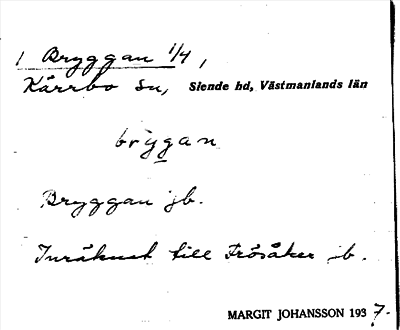 1 Bryggan 1/4,
Kärrbo sn, Siende hd, Västmanlands län
brygan
Bryggan jb.
Inräknat till Frösåker jb.
MARGIT JOHANSSON 1937.